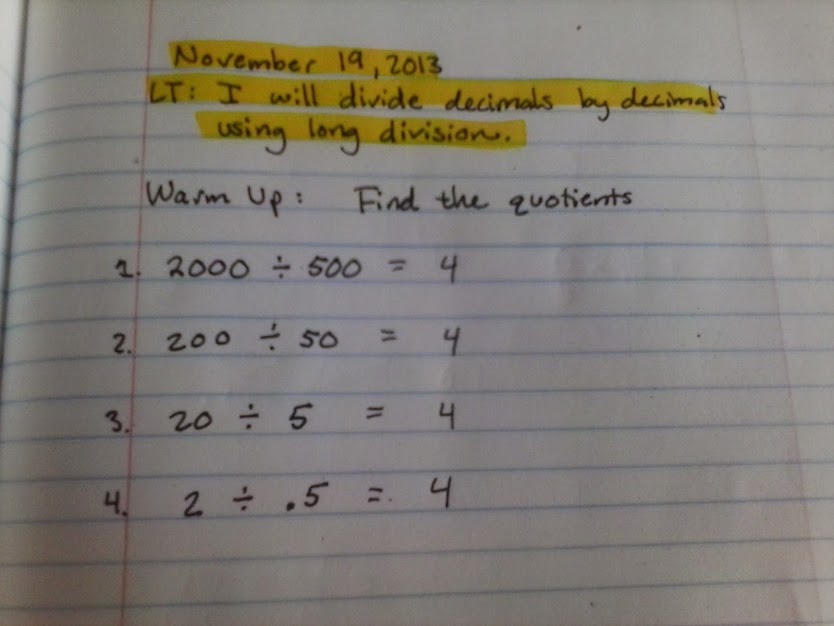 November 19, 2013
LT: I will divide decimals by decimals
using long division.
Warm Up: Find the quotients
1. 2000 ÷ 500 = 4
2. 200 ÷ 50 = 4
3. 20 ÷ 5 = 4
4. 2 ÷ .5 = 4